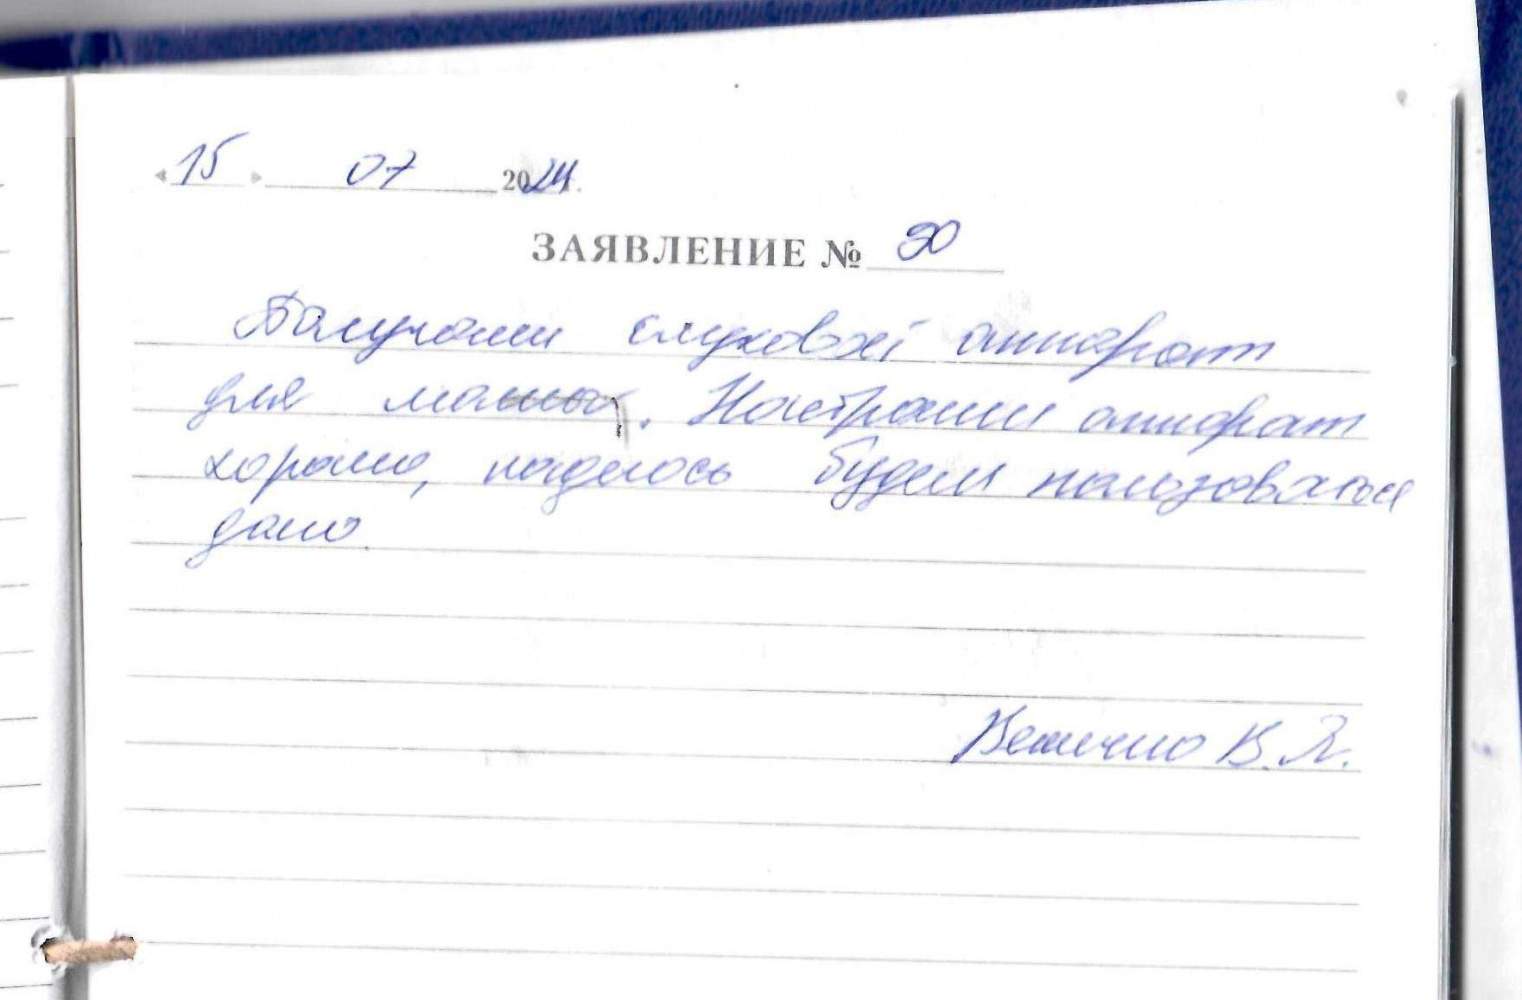 «15» 07 2024.
ЗАЯВЛЕНИЕ № 90
Получали слуховой аппарат
для мамы. Настроили аппарат
хорошо, надеюсь будем пользоваться
долго.
Величко В. Я.